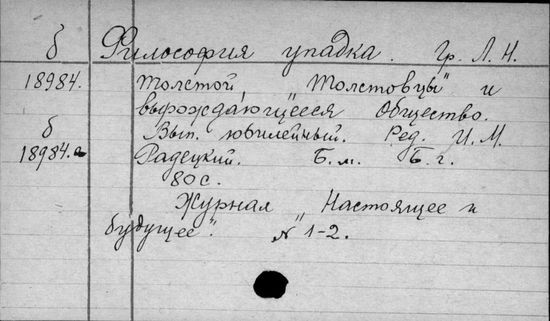 б Философия упадка. Гр. Л. Н.
18984. Толстой, "Толстовцы" и
вырождающееся Общество.
б Вып. юбилейный. Ред. И. М.
18984.а Радецкий. Б. м. Б. г.
80 с.
Журнал „Настоящее и
будущее". № 1-2.